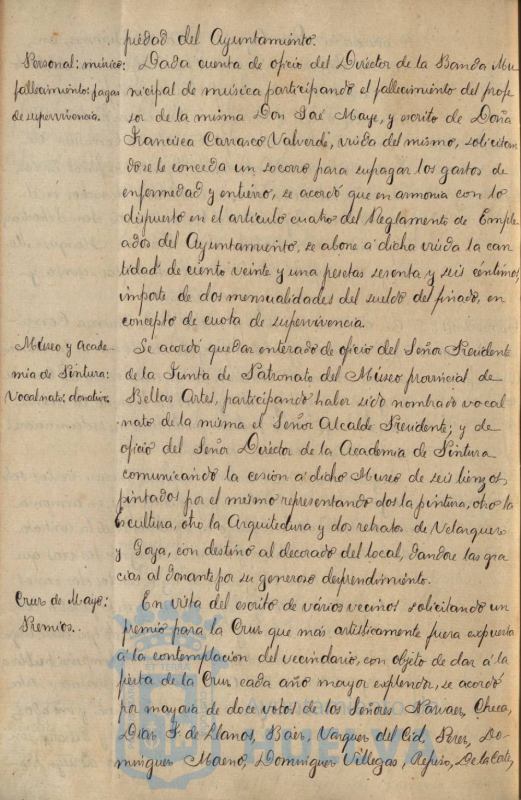 piedad del Ayuntamiento.
Personal: músico:
fallecimiento: pagas
de supervivencia.
Dada cuenta de oficio del Director de la Banda Mu-
nicipal de música participando el fallecimiento del profe-
sor de la misma Don José Maye, y escrito de Doña
Francisca Carrasco Valverde, viuda del mismo, solicitan-
dose le conceda un socorro para sufragar los gastos de
enfermedad y entierro, se acordó que en armonia con lo
dispuesto en el articulo cuatro del Reglamento de Emple-
ados del Ayuntamiento, se abone á dicha viuda la can-
tidad de ciento veinte y una pesetas sesenta y seis céntimos,
importe de dos mensualidades del sueldo del finado, en
concepto de cuota de supervivencia.
Museo y Acade-
mia de Pintura:
Vocalnato: donativo.
Se acordó quedar enterado de oficio del Señor Presidente
de la Junta de Patronato del Museo provincial de
Bellas Artes, participando haber sido nombrado vocal
nato de la misma el Señor Alcalde Presidente; y de
oficio del Señor Director de la Academia de Pintura
comunicando la cesión á dicho Museo de seis lienzos
pintados por el mismo representando dos la pintura, otro la
Escultura, otro la Arquitectura y dos retratos de Velazquez
y Goya, con destino al decorado del local, dandose las gra-
cias al donante por su generoso desprendimiento.
Cruz de Mayo:
Premios.
En vista del escrito de vários vecinos solicitando un
premio para la Cruz que más artisticamente fuera expuesta
á la contemplación del vecindario, con objeto de dar á la
fiesta de la Cruz cada año mayor explendor, se acordó
por mayoria de doce votos de los Señores Narvaez, Checa,
Diaz F. de Llanos, Vazquez del Cid, Perez, Do-
minguez Domínguez Villegas, De la Corte,
HUELVA